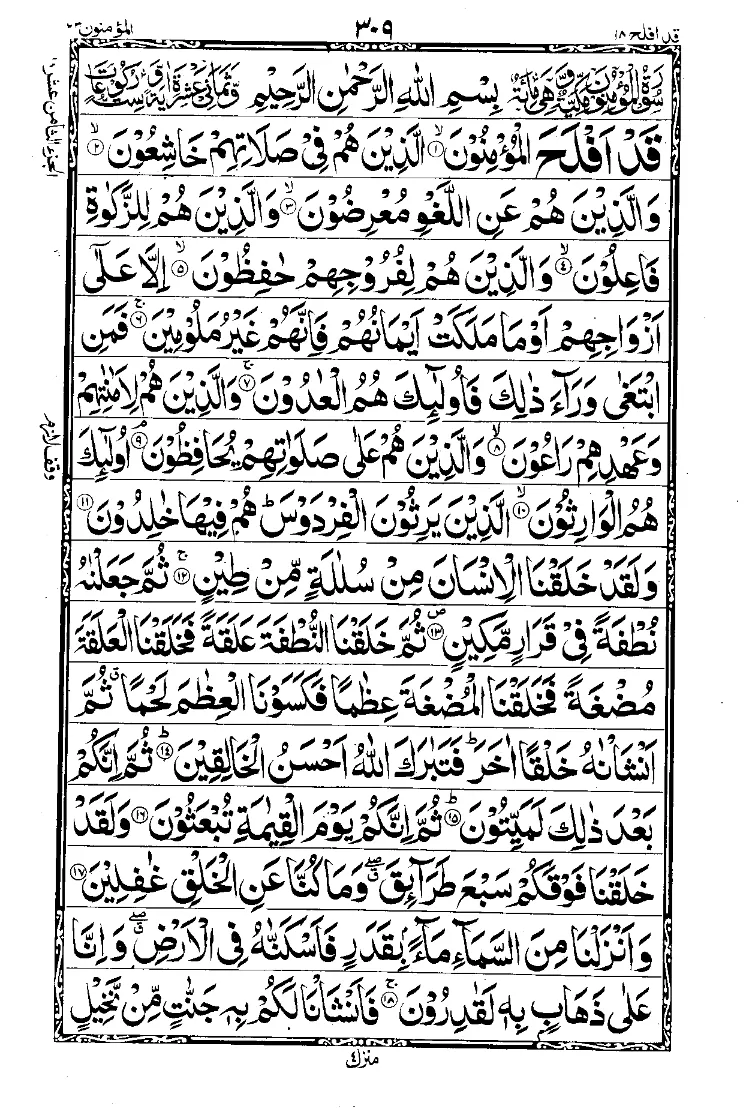 قد افلح ١٨
٣٠٩
المؤمنون ٢٣
سُوْرَةُ الْمُؤْمِنُوْنَ مَكِّيَّةٌ وَّهِيَ مِائَةٌ بِسْمِ اللّٰهِ الرَّحْمٰنِ الرَّحِيْمِ وَّثَمَانِيْ عَشْرَةَ اٰيَةً وَّسِتُّ رُكُوْعَاتٍ
قَدْ اَفْلَحَ الْمُؤْمِنُوْنَ ۙ﴿١﴾ الَّذِيْنَ هُمْ فِيْ صَلَاتِهِمْ خَاشِعُوْنَ ۙ﴿٢﴾
وَالَّذِيْنَ هُمْ عَنِ اللَّغْوِ مُعْرِضُوْنَ ۙ﴿٣﴾ وَالَّذِيْنَ هُمْ لِلزَّكٰوةِ
فَاعِلُوْنَ ۙ﴿٤﴾ وَالَّذِيْنَ هُمْ لِفُرُوْجِهِمْ حٰفِظُوْنَ ۙ﴿٥﴾ اِلَّا عَلٰٓى
اَزْوَاجِهِمْ اَوْ مَا مَلَكَتْ اَيْمَانُهُمْ فَاِنَّهُمْ غَيْرُ مَلُوْمِيْنَ ۚ﴿٦﴾ فَمَنِ
ابْتَغٰى وَرَآءَ ذٰلِكَ فَاُولٰٓئِكَ هُمُ الْعٰدُوْنَ ۚ﴿٧﴾ وَالَّذِيْنَ هُمْ لِاَمٰنٰتِهِمْ
وَعَهْدِهِمْ رَاعُوْنَ ۙ﴿٨﴾ وَالَّذِيْنَ هُمْ عَلٰى صَلَوٰتِهِمْ يُحَافِظُوْنَ ۘ﴿٩﴾ اُولٰٓئِكَ
هُمُ الْوَارِثُوْنَ ۙ﴿١٠﴾ الَّذِيْنَ يَرِثُوْنَ الْفِرْدَوْسَ ؕ هُمْ فِيْهَا خٰلِدُوْنَ ﴿١١﴾
وَلَقَدْ خَلَقْنَا الْاِنْسَانَ مِنْ سُلٰلَةٍ مِّنْ طِيْنٍ ۚ﴿١٢﴾ ثُمَّ جَعَلْنٰهُ
نُطْفَةً فِيْ قَرَارٍ مَّكِيْنٍ ۪﴿١٣﴾ ثُمَّ خَلَقْنَا النُّطْفَةَ عَلَقَةً فَخَلَقْنَا الْعَلَقَةَ
مُضْغَةً فَخَلَقْنَا الْمُضْغَةَ عِظٰمًا فَكَسَوْنَا الْعِظٰمَ لَحْمًا ۗ ثُمَّ
اَنْشَاْنٰهُ خَلْقًا اٰخَرَ ؕ فَتَبٰرَكَ اللّٰهُ اَحْسَنُ الْخَالِقِيْنَ ؕ﴿١٤﴾ ثُمَّ اِنَّكُمْ
بَعْدَ ذٰلِكَ لَمَيِّتُوْنَ ؕ﴿١٥﴾ ثُمَّ اِنَّكُمْ يَوْمَ الْقِيٰمَةِ تُبْعَثُوْنَ ﴿١٦﴾ وَلَقَدْ
خَلَقْنَا فَوْقَكُمْ سَبْعَ طَرَآئِقَ ۖ ق وَمَا كُنَّا عَنِ الْخَلْقِ غٰفِلِيْنَ ﴿١٧﴾
وَاَنْزَلْنَا مِنَ السَّمَآءِ مَآءًۢ بِقَدَرٍ فَاَسْكَنّٰهُ فِي الْاَرْضِ ۖ ق وَاِنَّا
عَلٰى ذَهَابٍۭ بِهٖ لَقٰدِرُوْنَ ۚ﴿١٨﴾ فَاَنْشَاْنَا لَكُمْ بِهٖ جَنّٰتٍ مِّنْ نَّخِيْلٍ
منزل ٤
الجزء الثامن عشر ١٨
وقف لازم